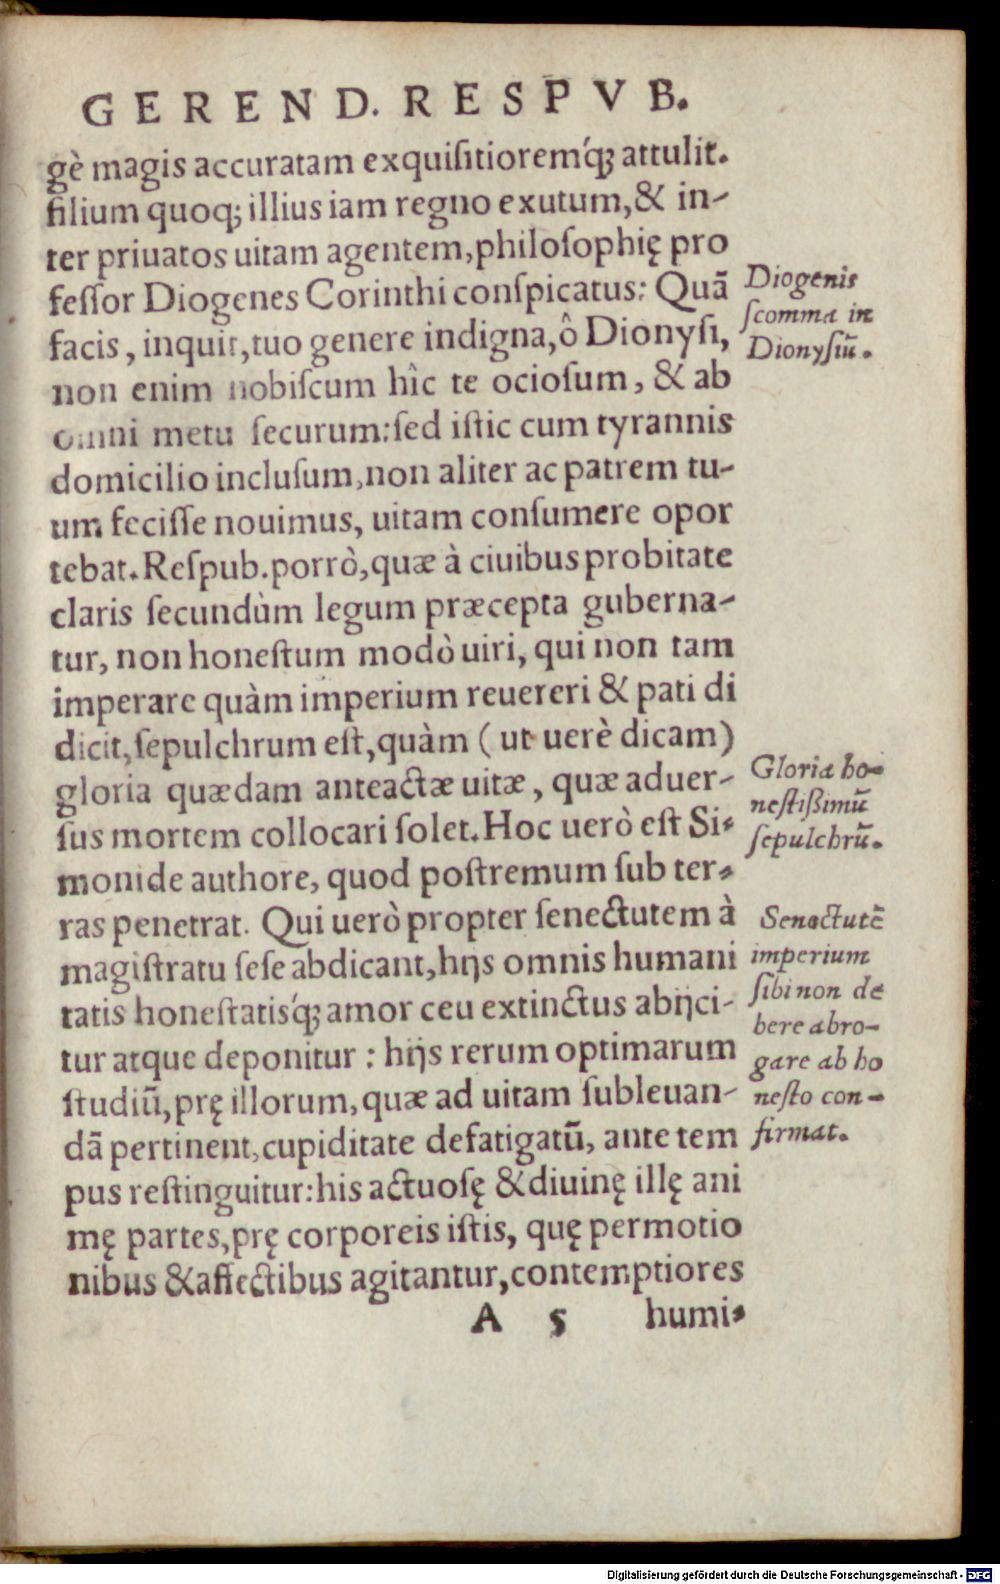 GEREND. RESPVB.
gè magis accuratam exquisitioremq́; attulit.
filium quoq; illius iam regno exutum, & in-
ter priuatos uitam agentem, philosophię pro
fessor Diogenes Corinthi conspicatus: Quā
facis, inquit, tuo genere indigna, ô Dionysi,
non enim nobiscum hîc te ociosum, & ab
omni metu securum: sed istic cum tyrannis
domicilio inclusum, non aliter ac patrem tu-
um fecisse nouimus, uitam consumere opor
tebat. Respub. porrò, quæ à ciuibus probitate
claris secundùm legum præcepta guberna-
tur, non honestum modò uiri, qui non tam
imperare quàm imperium reuereri & pati di
dicit, sepulchrum est, quàm (ut uerè dicam)
gloria quædam anteactæ uitæ, quæ aduer-
sus mortem collocari solet. Hoc uerò est Si-
monide authore, quod postremum sub ter-
ras penetrat. Qui uerò propter senectutem à
magistratu sese abdicant, hijs omnis humani
tatis honestatisq́; amor ceu extinctus abijci-
tur atque deponitur: hijs rerum optimarum
studiū, prę illorum, quæ ad uitam subleuan-
dā pertinent, cupiditate defatigatū, ante tem
pus restinguitur: his actuosę & diuinę illę ani
mę partes, prę corporeis istis, quę permotio
nibus & affectibus agitantur, contemptiores
A 5 humi-
Diogenis
scomma in
Dionysiū.
Gloria ho-
nestißimū
sepulchrū.
Senectutē
imperium
sibi non de
bere abro-
gare ab ho
nesto con-
firmat.
Digitalisierung gefördert durch die Deutsche Forschungsgemeinschaft - DFG